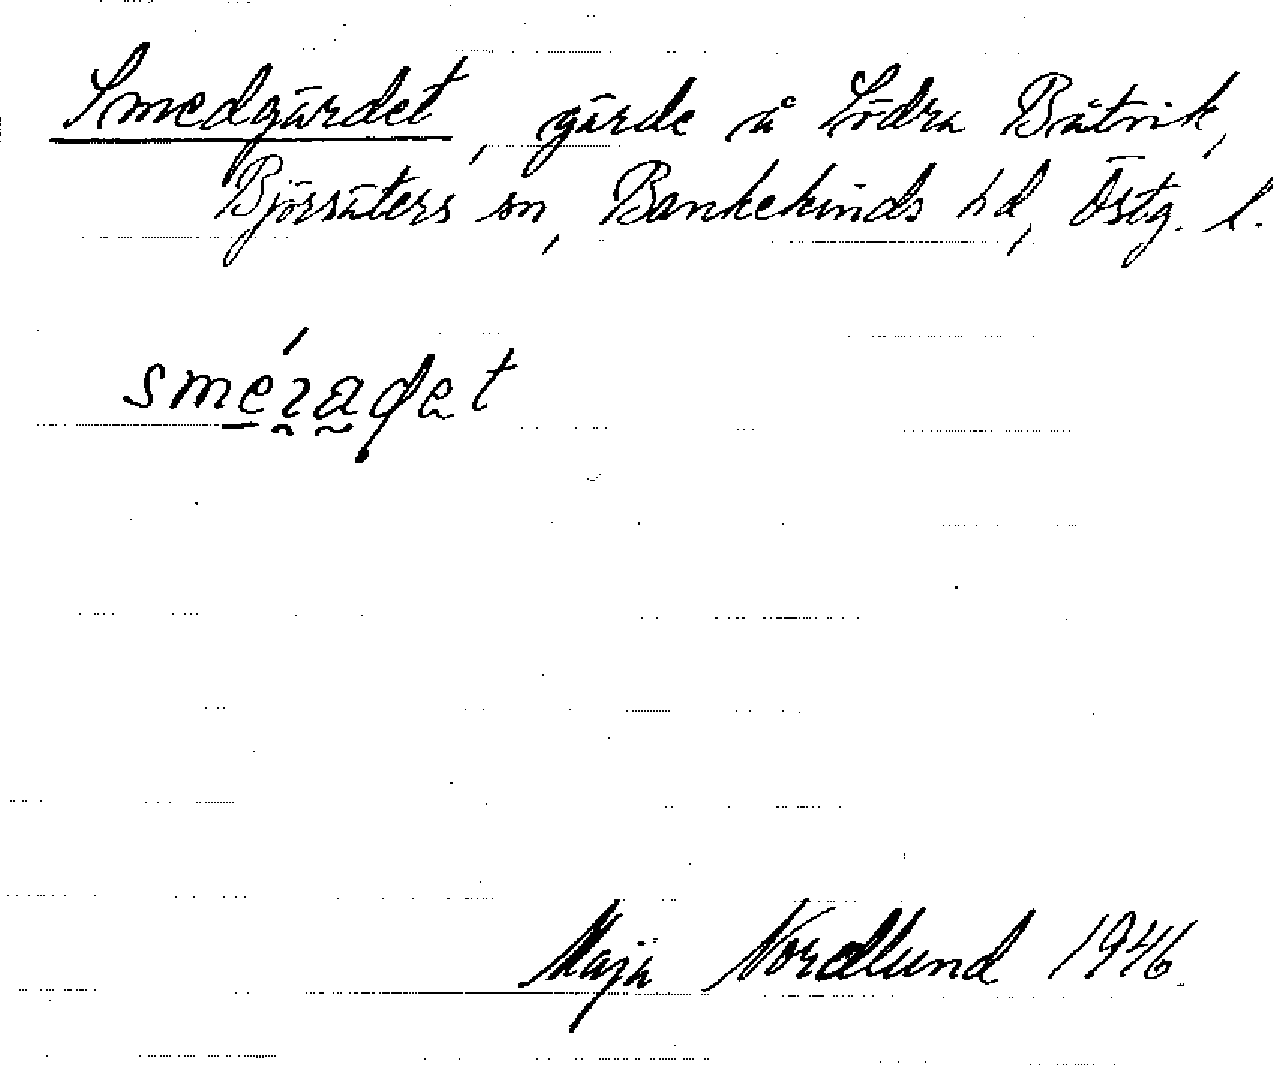 Smedgärdet, gärde å Södra Båtvik,
Björsäters sn, Bankekinds hd, Östg. l.
Maja Nordlund 1946